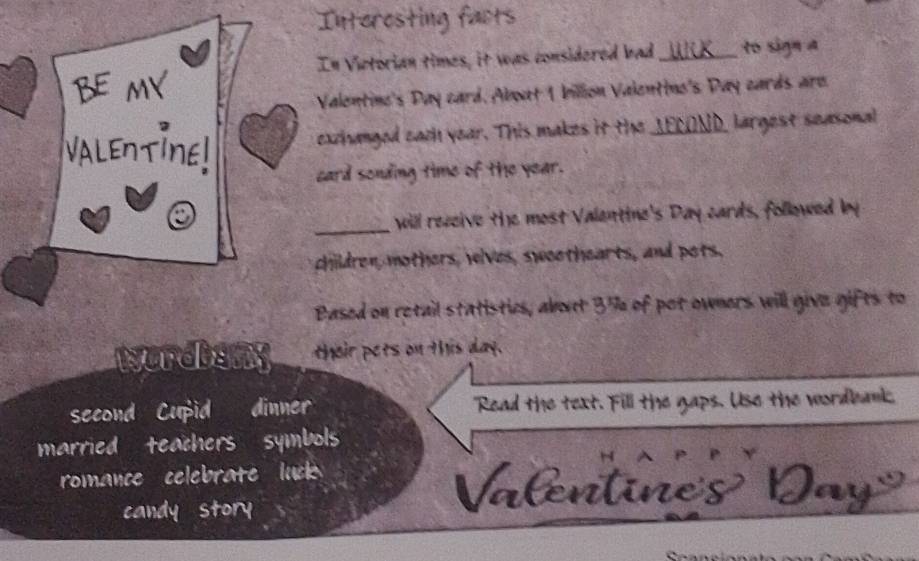 BE MY
VALENTINE!
Interesting facts
In Victorian times, it was considered bad LUCK to sign a
Valentine's Day card. About 1 billion Valentine's Day cards are
exchanged each year. This makes it the SECOND largest seasonal
card sending time of the year.
______ will receive the most Valentine's Day cards, followed by
children, mothers, wives, sweethearts, and pets.
Based on retail statistics, about 3% of pet owners will give gifts to
their pets on this day.
wordbank
second Cupid dinner
married teachers symbols
romance celebrate luck
candy story
Read the text. Fill the gaps. Use the wordbank.
HAPPY
Valentine's Day
Scansionato con